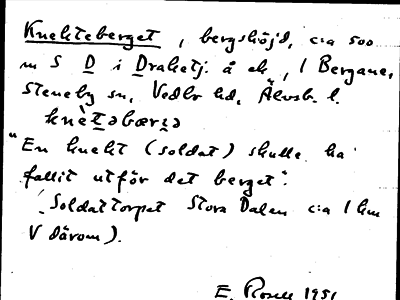 Knekteberget, bergshöjd, c:a 500
m S D i Draketj. å ek, i Bergane,
Steneby sn, Vedbo hd, Älvsb. l.
knètəbærɪə
"En knekt (soldat) skulle ha
fallit utför det berget".
(Soldattorpet Stora Dalen c:a 1 km
V därom).
E. Rosell 1951